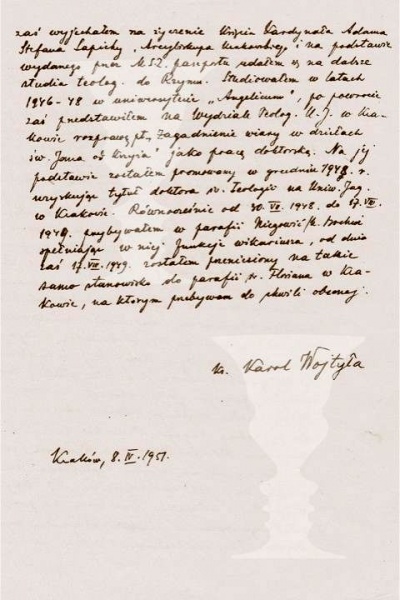 zaś wyjechałem na życzenie Księcia Kardynała Adama
Stefana Sapiehy „Arcybiskupa Krakowskiego i na podstawie
wydanego przez MSZ. paszportu udałem się na dalsze
studia teolog. do Rzymu. Studiowałem w latach
1946-48 w uniwersytecie „Angelicum”, po powrocie
zaś przedstawiłem na Wydziale Teolog. U. J. w Kra-
kowie rozprawę pt. Zagadnienie wiary w dziełach
św. Jana od Krzyża” jako pracę doktorską. Na jej
podstawie zostałem promowany w grudniu 1948 r.
uzyskując tytuł doktora św. Teologii na Uniw. Jag.
w Krakowie. Równocześnie od 30. VI. 1948. do 17. VIII.
1949. przebywałem w parafii Niegowić /k. Bochni
spełniając w niej funkcje wikariusza, od dnia
zaś 17. VIII. 1949. zostałem przeniesiony na takie
samo stanowisko do parafii św. Floriana w Kra-
kowie, na którym przebywam do chwili obecnej.
ks. Karol Wojtyła
Kraków, 8. IV. 1951.